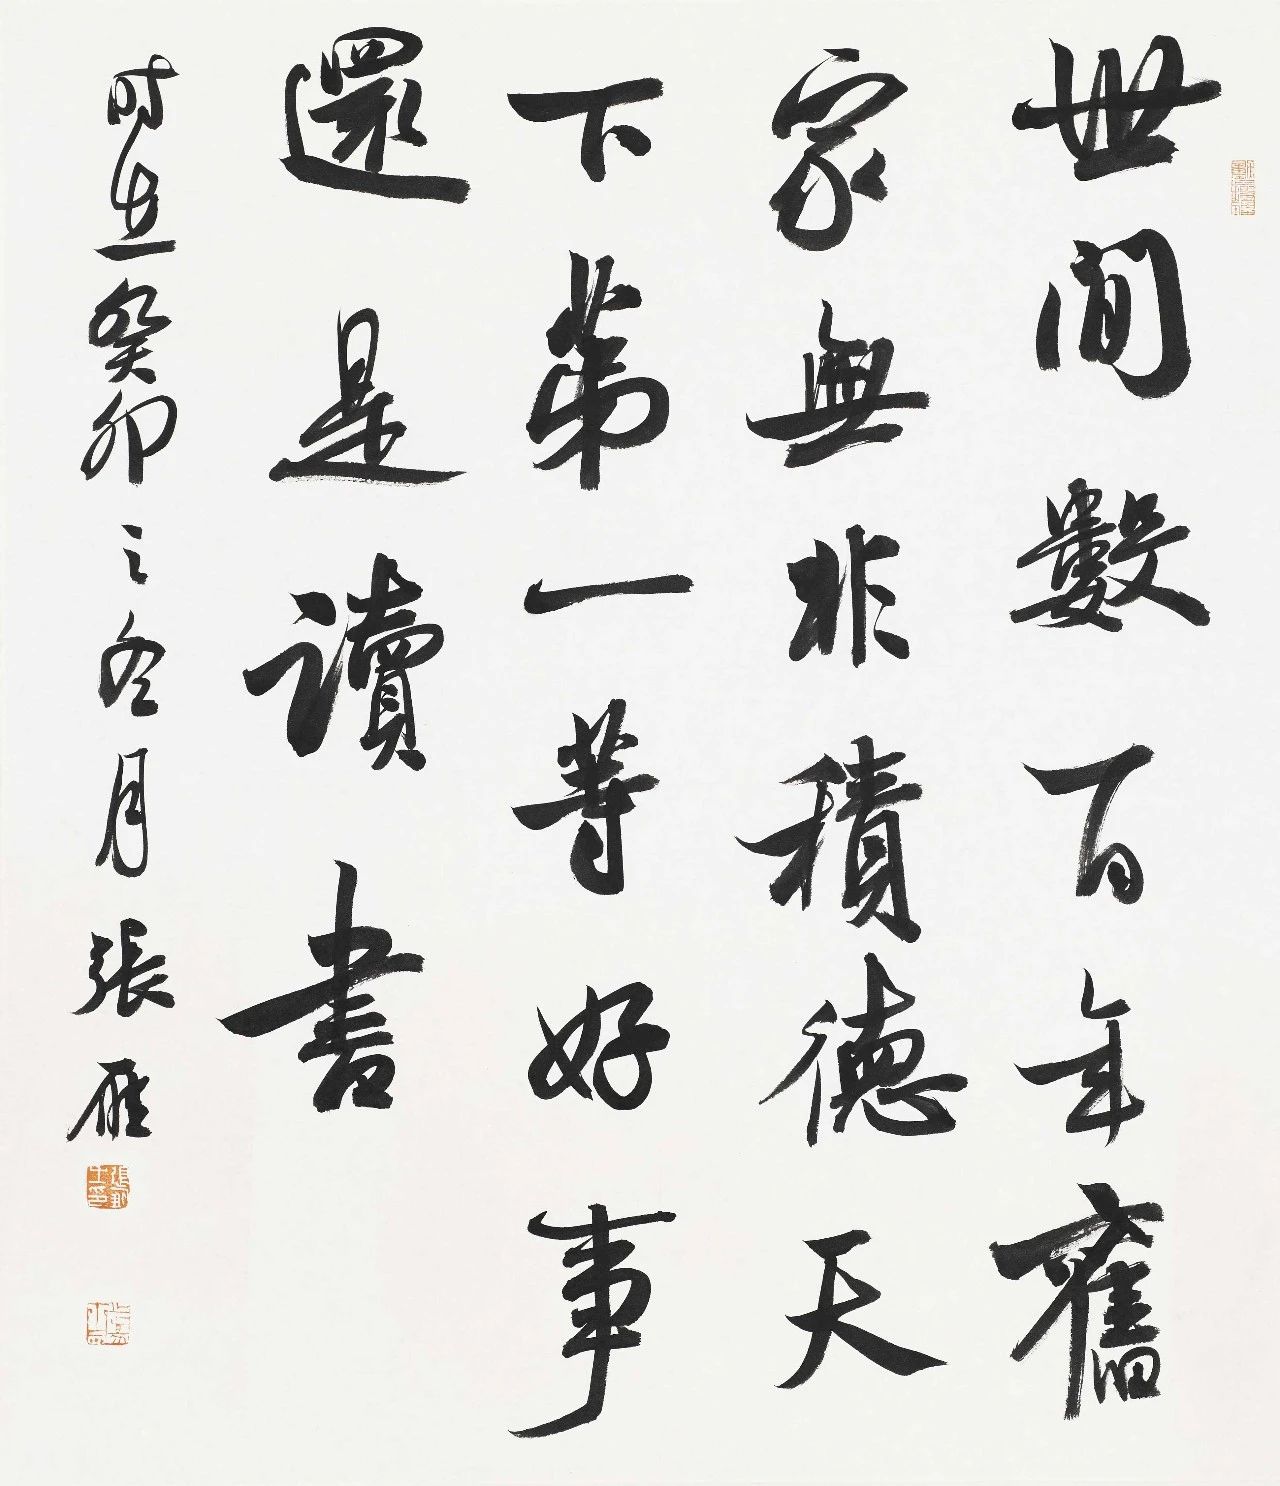 世間數百年舊
家無非積德天
下第一等好事
還是讀書
时在癸卯之冬月張雁